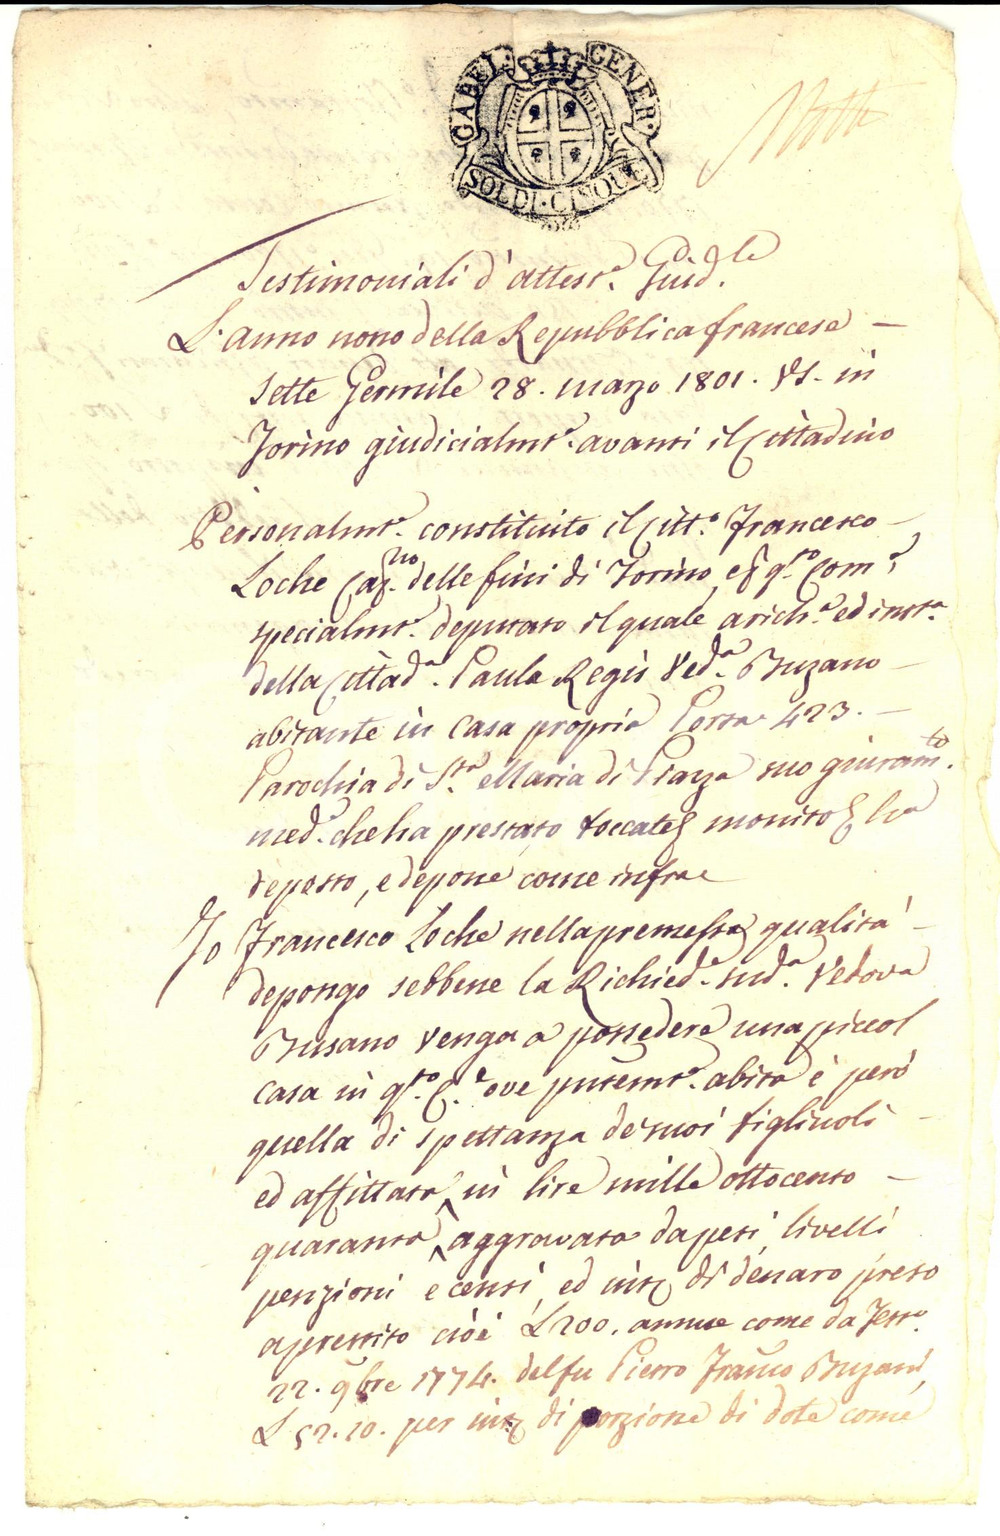 GABEL: GENER.
SOLDI·CINQUE
Testimoniali d'attest.e Giud.le
L'anno nono della Repubblica francese —
sette Germile 28. marzo 1801. V.S. in
Torino giudicialmt.e avanti il Cittadino
Personalmt.e constituito il Citt.o Francesco —
Loche delle fini di Torino, e q.sto Com.e
specialmt.e deputato il quale a rich.a ed inst.a
della Cittad.a Paula Regis Ved.a Buzano —
abitante in casa propria Porta 423. —
Parochia di S.ta Maria di Piazza suo giuram.to
med.e che ha prestato toccate monito ha
deposto, e depone come infra
Io Francesco Loche nella premessa qualità —
depongo sebbene la Richied.e sud.a Vedova
Busano venga a possedere una piccol
casa in q.sto C.e ove pntemt.e abita è però
quella di spettanza de suoi figliuoli —
ed affittata in lire mille ottocento —
quaranta aggravata da pesi, livelli
penzioni e censi, ed int. di denaro preso
aprestito cioè L 200. annue come da Test.o
22. 9bre 1774. del fu Pietro Fran.co Buzani,
L 52.10. per int. di porzione di dote come